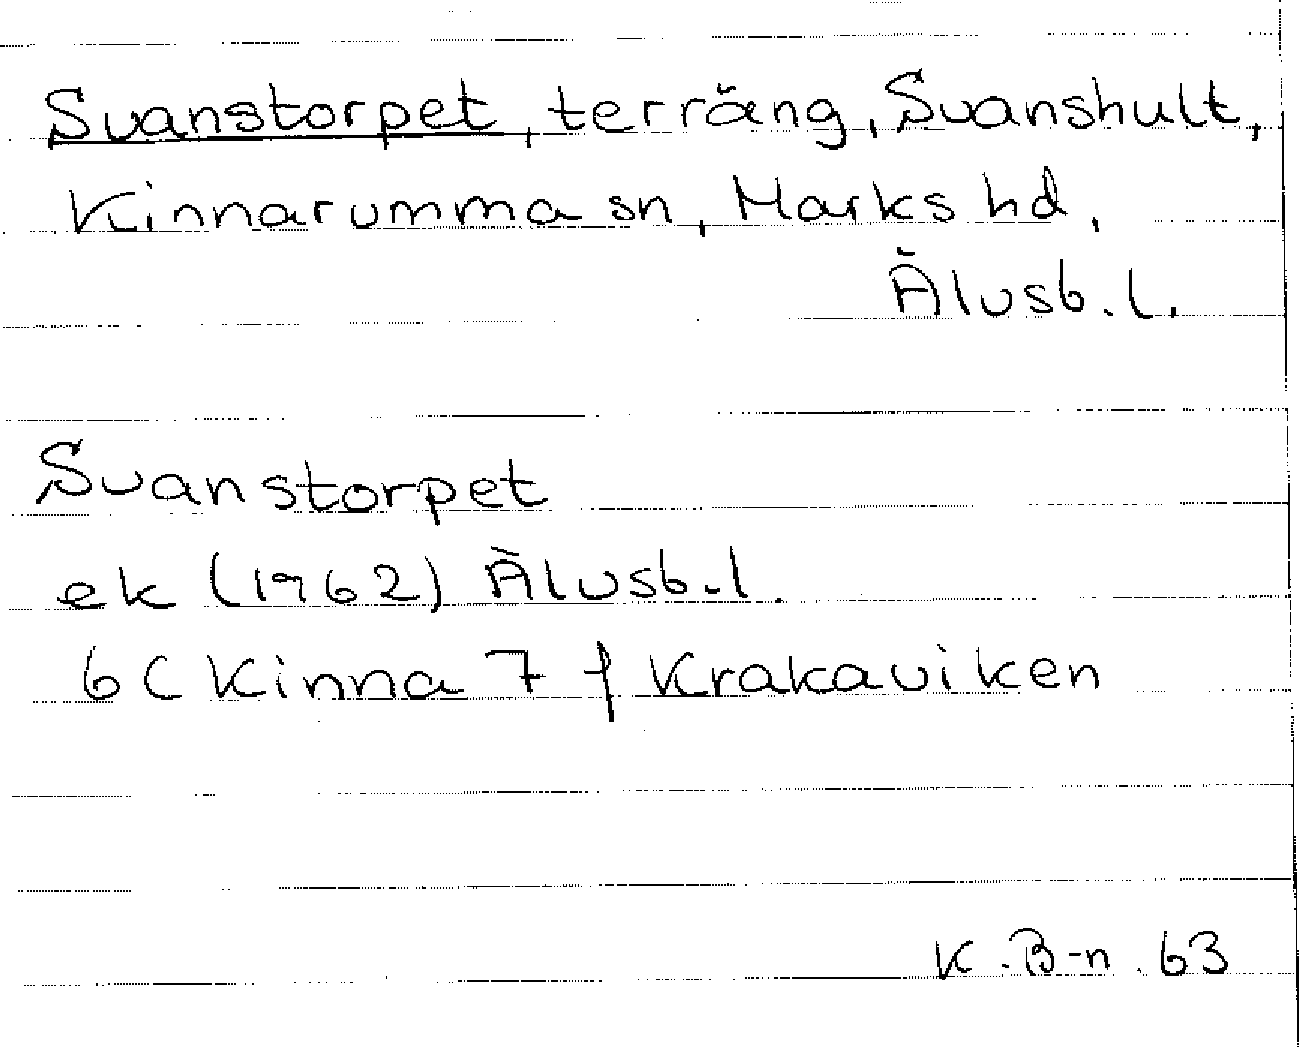 Svanstorpet, terräng, Svanshult,
Kinnarumma sn, Marks hd,
Älvsb.l.
Svanstorpet
ek (1962) Älvsb.l
6C Kinna 7 f Krakaviken
K.B-n. 63